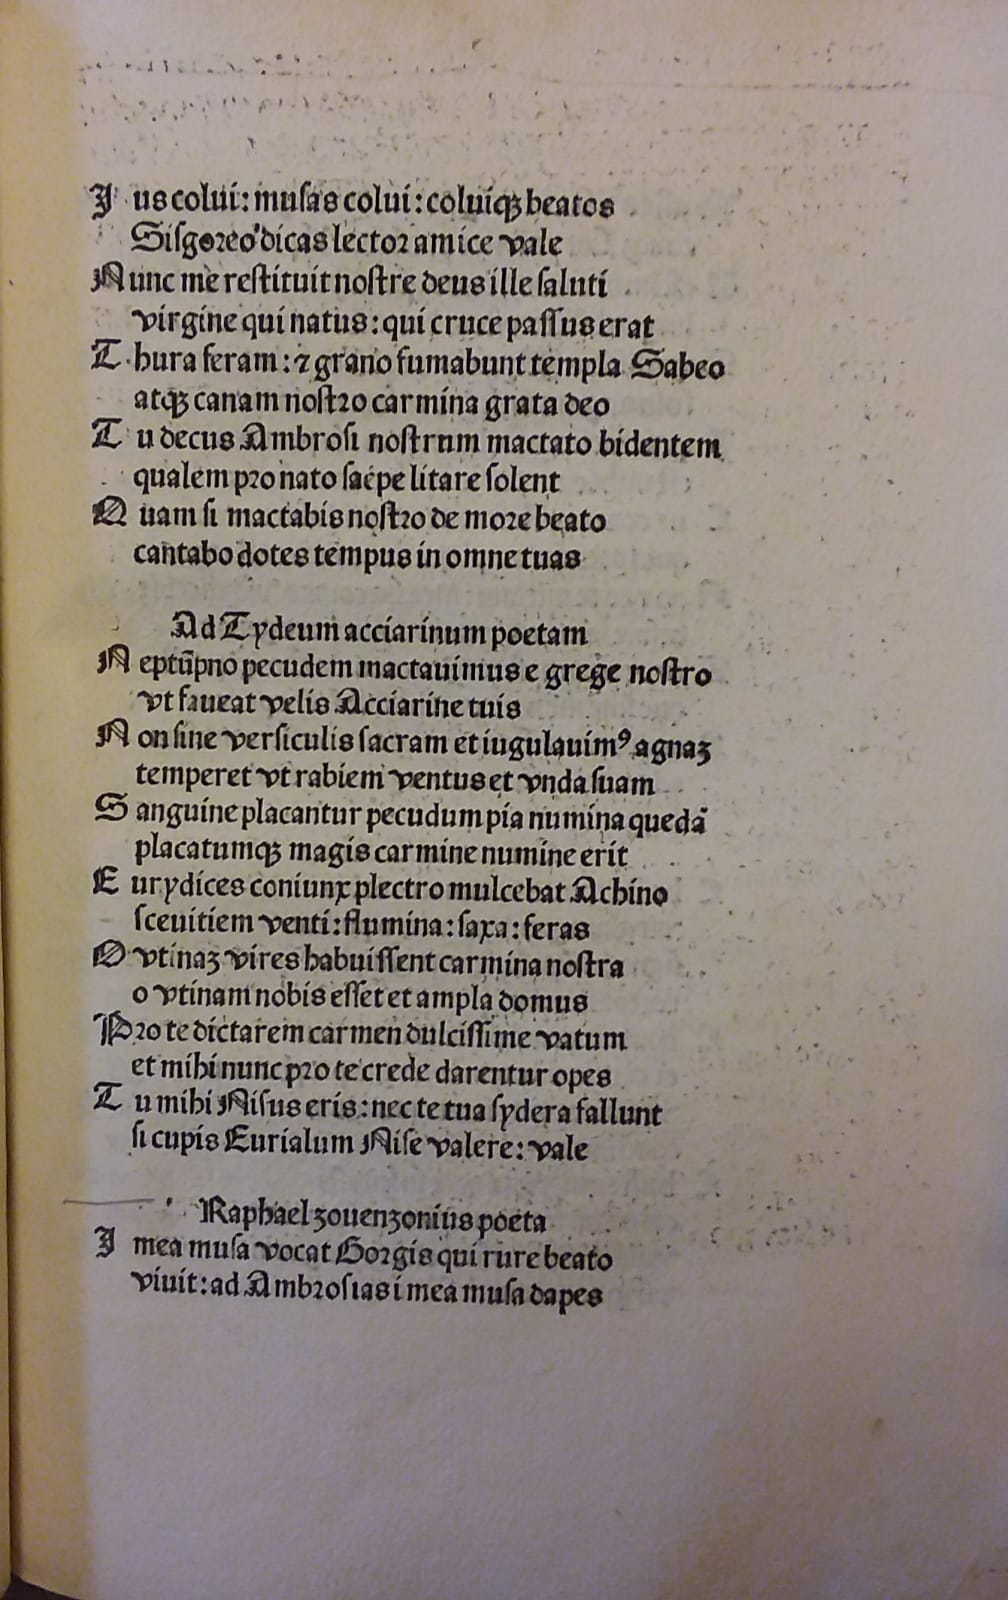 Ius colui: musas colui: coluiqꝫ beatos
Sisgoreo dicas lector amice vale
Nunc me restituit nostre deus ille saluti
virgine qui natus: qui cruce passus erat
Thura feram: ⁊ grano fumabunt templa Sabeo
atqꝫ canam nostro carmina grata deo
Tu decus Ambrosi nostrum mactato bidentem
qualem pro nato saepe litare solent
Quam si mactabis nostro de more beato
cantabo dotes tempus in omne tuas
Ad Tydeum acciarinum poetam
Neptūpno pecudem mactauimus e grege nostro
vt faueat velis Acciarine tuis
Non sine versiculis sacram et iugulauimꝰ agnaꝫ
temperet vt rabiem ventus et vnda suam
Sanguine placantur pecudum pia numina quedā
placatumqꝫ magis carmine numine erit
Eurydices coniunx plectro mulcebat Achino
sceuitiem venti: flumina: saxa: feras
O vtinaꝫ vires habuissent carmina nostra
o vtinam nobis esset et ampla domus
Pro te dictarem carmen dulcissime vatum
et mihi nunc pro te crede darentur opes
Tu mihi Nisus eris: nec te tua sydera fallunt
si cupis Eurialum Nise valere: vale
Raphael ʒouenʒonius poeta
I mea musa vocat Gorgis qui rure beato
viuit: ad Ambrosias i mea musa dapes